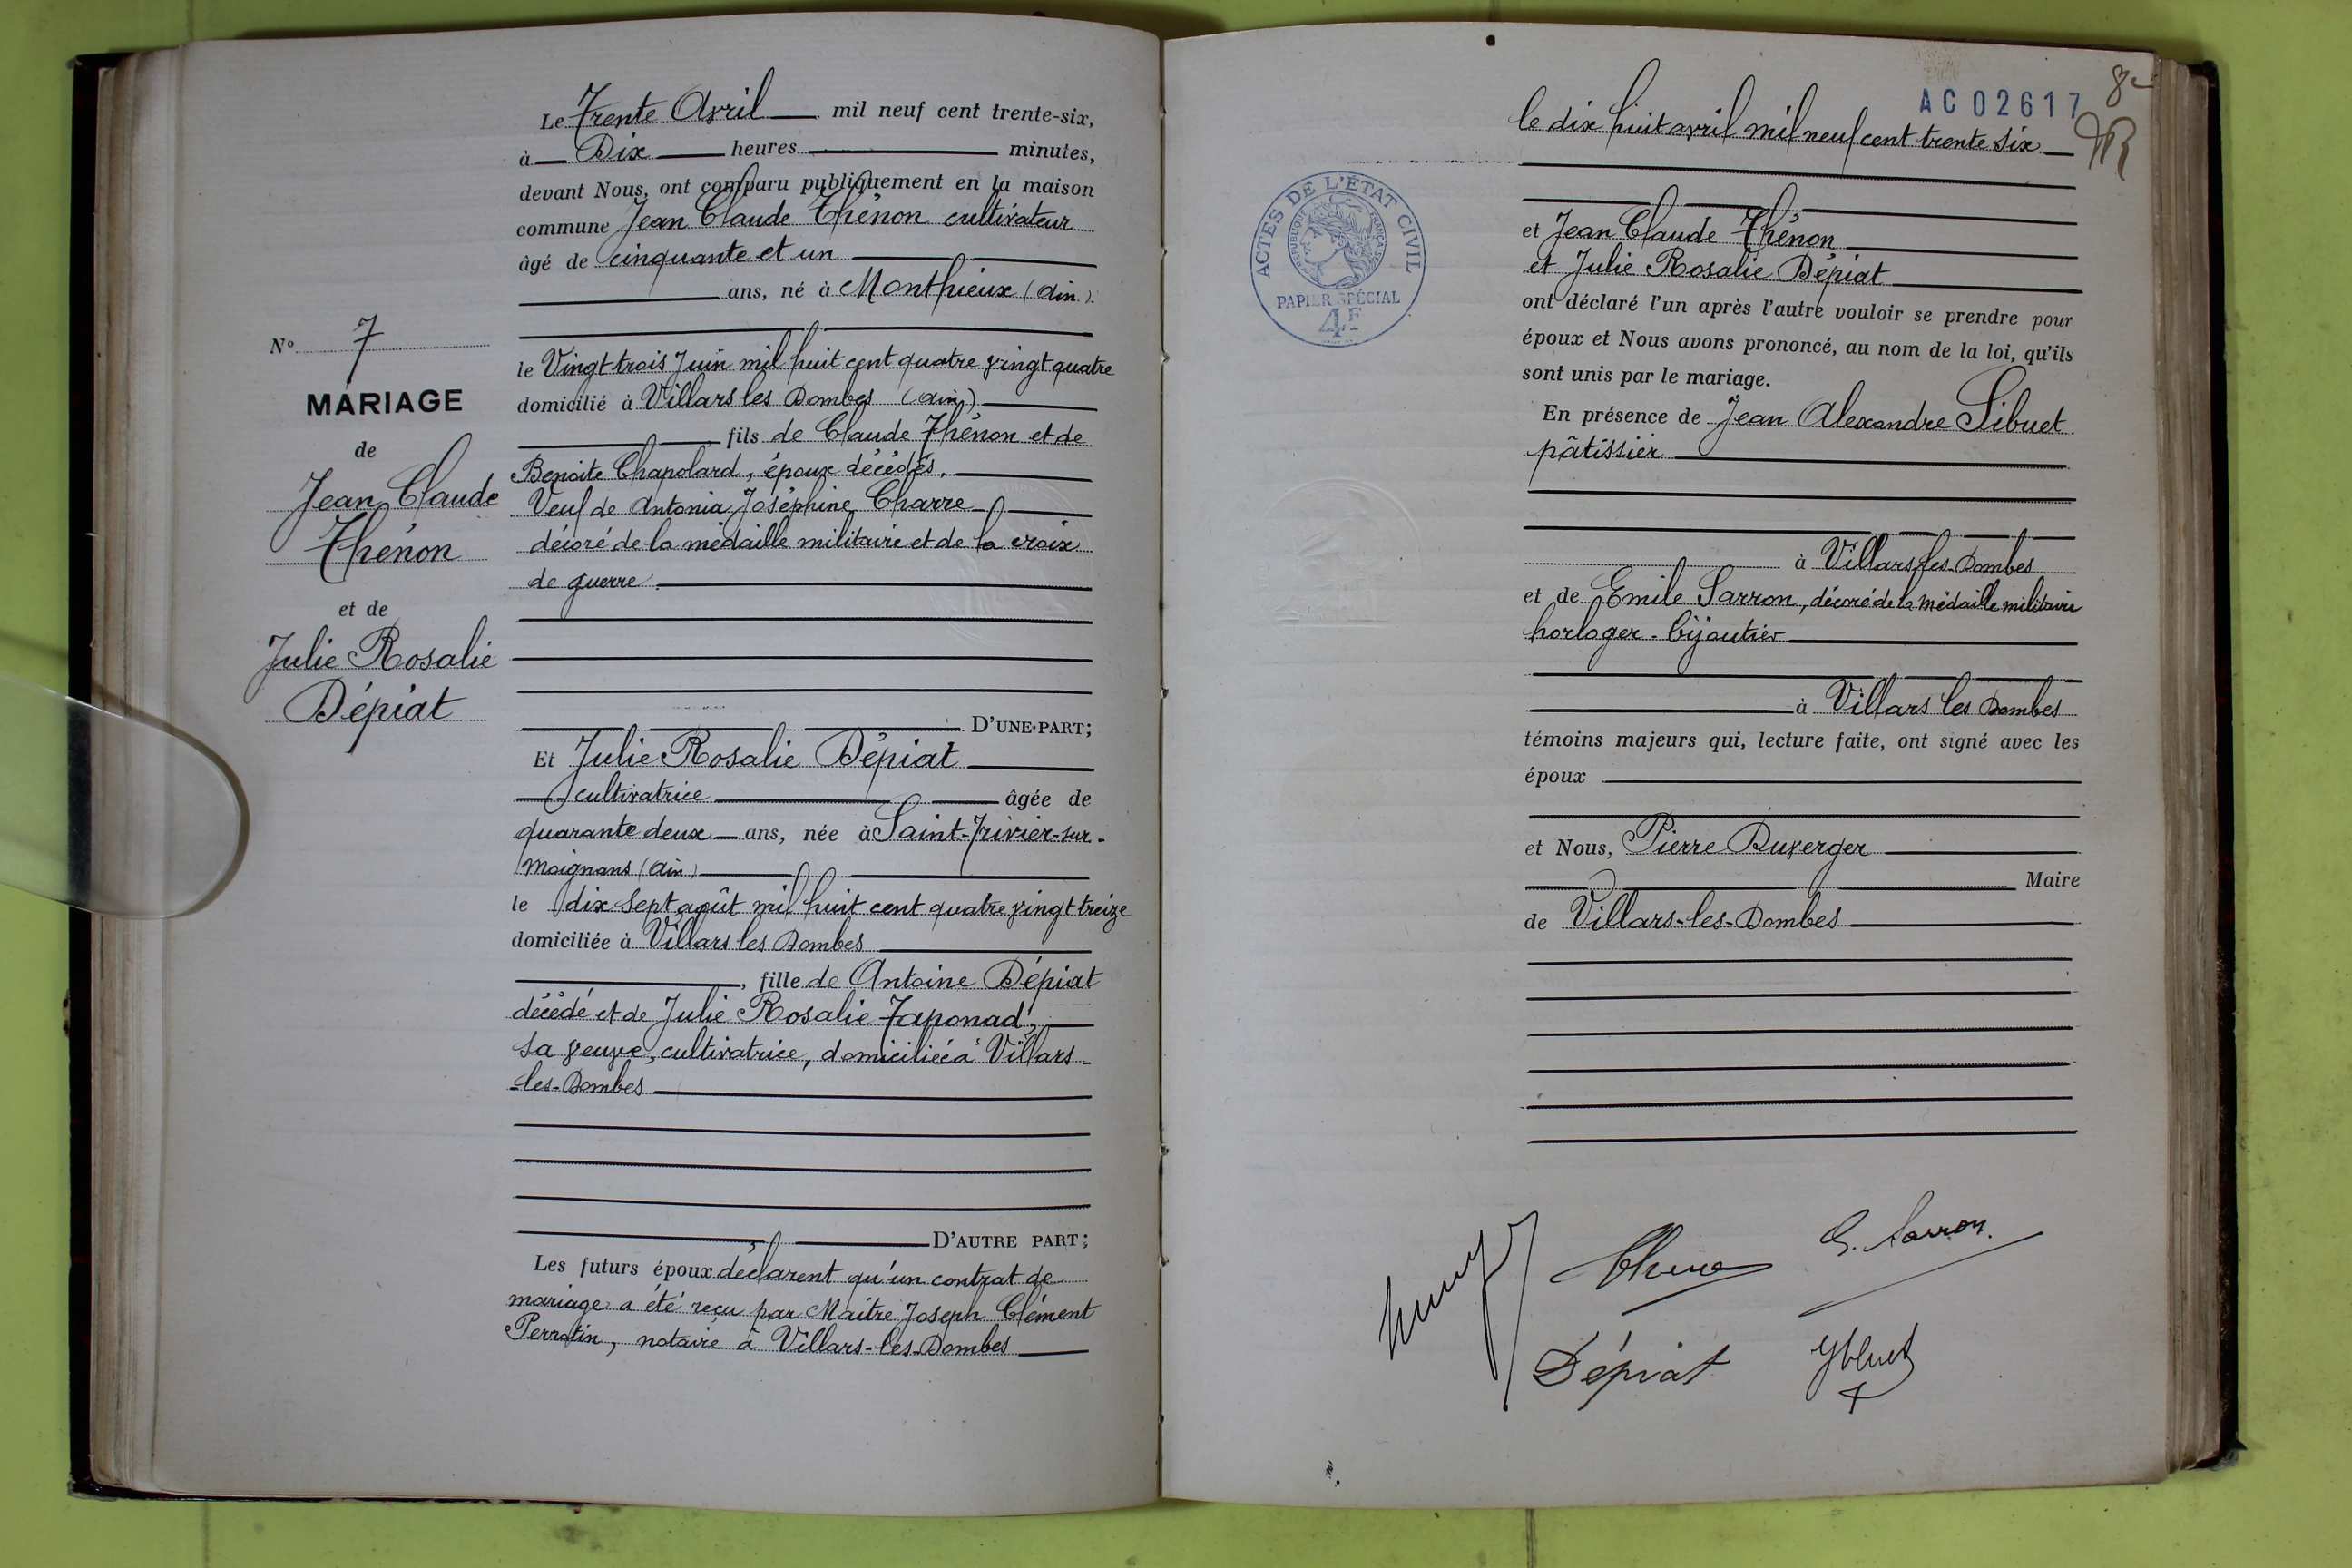 Le Trente Avril mil neuf cent trente-six,
à Dix heures minutes,
devant Nous, ont comparu publiquement en la maison
commune Jean Claude Thénon cultivateur
âgé de cinquante et un
ans, né à Monthieux (Ain)
le Vingt trois Juin mil huit cent quatre vingt quatre
domicilié à Villars les Dombes (Ain)
fils de Claude Thénon et de
Benoite Chapolard, époux décédés.
Veuf de Antonia Joséphine Charre
décoré de la médaille militaire et de la croix
de guerre.
D'UNE PART;
N° 7
MARIAGE
de
Jean Claude
Thénon
et de
Julie Rosalie
Dépiat
Et Julie Rosalie Dépiat
cultivatrice âgée de
quarante deux ans, née à Saint-Trivier-sur-
Moignans (Ain)
le dix sept août mil huit cent quatre vingt treize
domiciliée à Villars les Dombes
, fille de Antoine Dépiat
décédé et de Julie Rosalie Taponad,
sa veuve, cultivatrice, domiciliée à Villars
-les-Dombes
D'AUTRE PART;
Les futurs époux déclarent qu'un contrat de
mariage a été reçu par Maitre Joseph Clément
Perratin, notaire à Villars-les-Dombes
AC 02617
le dix huit avril mil neuf cent trente six
ACTES DE L'ÉTAT CIVIL
RÉPUBLIQUE FRANÇAISE
PAPIER SPÉCIAL
4F
et Jean Claude Thénon
et Julie Rosalie Dépiat
ont déclaré l'un après l'autre vouloir se prendre pour
époux et Nous avons prononcé, au nom de la loi, qu'ils
sont unis par le mariage.
En présence de Jean Alexandre Sibuet
pâtissier
à Villars-les-Dombes
et de Emile Sarron, décoré de la médaille militaire
horloger-bijoutier
à Villars les Dombes
témoins majeurs qui, lecture faite, ont signé avec les
époux
et Nous, Pierre Duverger
Maire
de Villars-les-Dombes
Sarron.
Dépiat